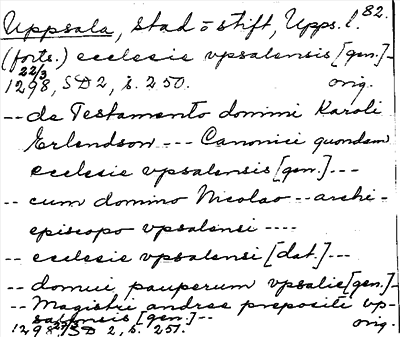 Uppsala, stad o stift, Upps. l. 82.
(forts.) ecclesie vpsalensis [gen.]--
1298 22/3, SD 2, s. 250. orig.
-- de Testamento domini Karoli
Erlendson --- Canonici quondam
ecclesie vpsalensis [gen.] ---
-- cum domino Nicolao -- archi-
episcopo vpsalensi ----
-- ecclesie vpsalensi [dat.] ---
-- domui pauperum vpsalie [gen.]--
-- Magistri andree prepositi vp-
salensis [gen.] --
1298 SD 2, s. 251. orig.